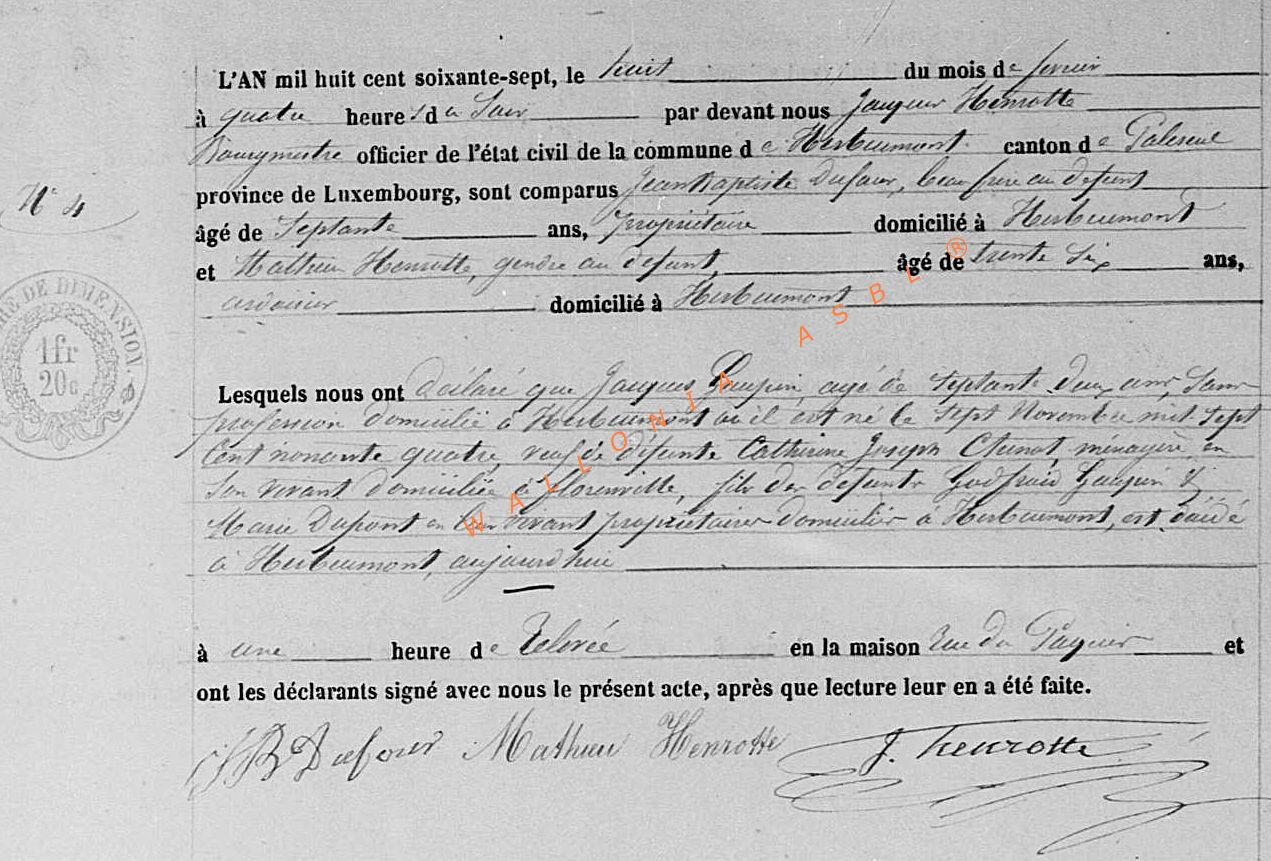 L'AN mil huit cent soixante-sept, le huit du mois de fevrier
à quatre heures du Soir par devant nous Jacques Henrotte
Bourgmestre officier de l'état civil de la commune de Herbeumont canton de Paliseul
province de Luxembourg, sont comparus Jean Baptiste Dufour, beau frère au défunt
N° 4
âgé de Septante ans, propriétaire domicilié à Herbeumont
et Mathieu Henrotte, gendre au défunt, âgé de trente Six ans,
ardoisier domicilié à Herbeumont
TIMBRE DE DIMENSION.
1fr
20c
WALLONIA ASBL ®
Lesquels nous ont déclaré que Jacques Gaupin, agé de Septante deux ans, Sans
profession domicilié à Herbeumont où il est né le Sept Novembre mil Sept
Cent nonante quatre, veuf de défunte Catherine Joseph ménagère en
Son vivant domiciliée à florenville, fils des defunts Godfroid Gaupin &
Marie Dupont en leur vivant propriétaires domiciliés à Herbeumont, est décédé
à Herbeumont, aujourd'hui
à une heure de Relevée en la maison Rue du Paquier et
ont les déclarants signé avec nous le présent acte, après que lecture leur en a été faite.
JB Dufour Mathieu Henrotte J. henrotte